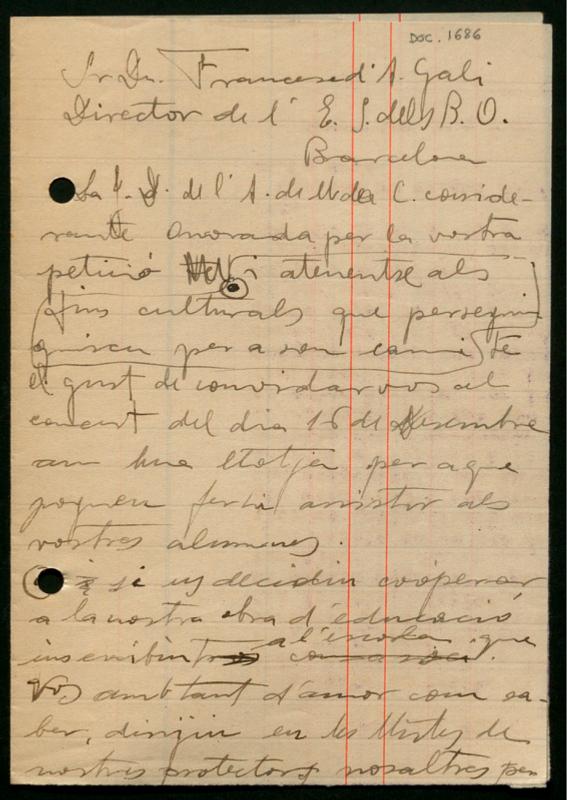 DOC. 1686
Sr. Dn. Francesc d'A. Gali
Director de l' E. S. dels B. O.
Barcelona
La J. D. de l'A. de M. da C. conside-
rante onorada per la vostra
petició i atenentse als
fins culturals que persegui
guiscu per a son cami té
el gust de convidarvos al
concert del dia 16 de Desembre
am una llotja per a que
poguen ferhi assistir als
vostres alumnes.
i si us decidiu cooperar
a la nostra obra d'educació
inscribint a l'escola que
Vos amb tant d'amor com sa-
ber, dirigiu en les llistes de
nostres protectors nosaltres per